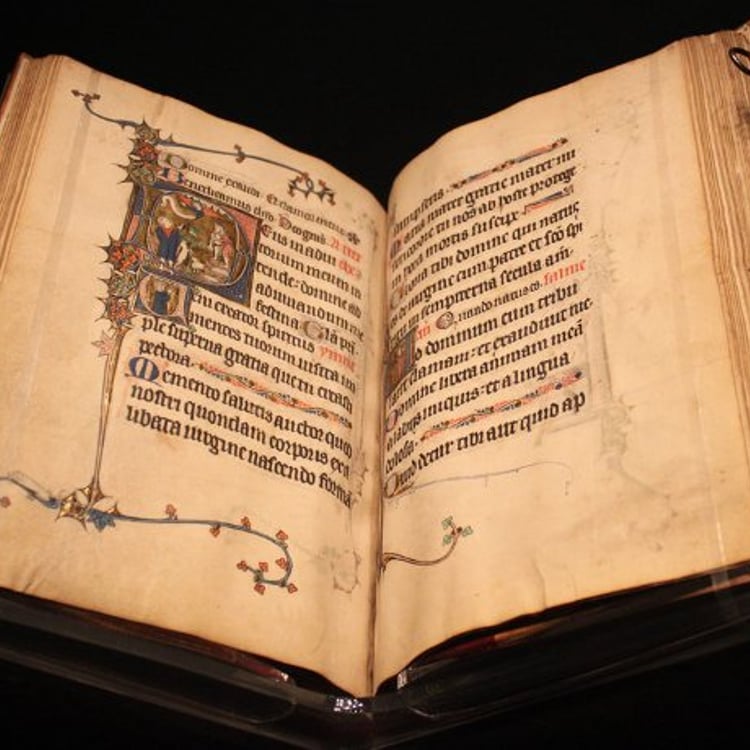 Domine exaudi. Et clamor meus
Benedicamus dño.
Eus in adiu
torium meum in
tende: domine ad
adiuuandum me
festina Gła pri.
eni creator spiritus ympne
mentes tuorum uisita im
ple superna gratia que tu creasti
pectora.
Memento salutis auctor quod
nostri quondam corporis ex
libata uirgine nascendo forma
sumpseris.
Maria mater gratie mater mi
tu nos ab hoste protege
hora mortis suscipe.
Gloria tibi domine qui natus
de uirgine cum patre et sc̃o sp̃u
in sempiterna secula am̃.
Quando natus es.
d dominum cum tribu
clamaui: et exaudiuit me.
Domine libera animam meã
a labijs iniquis: et a lingua
dolosa.
Quid detur tibi aut quid ap